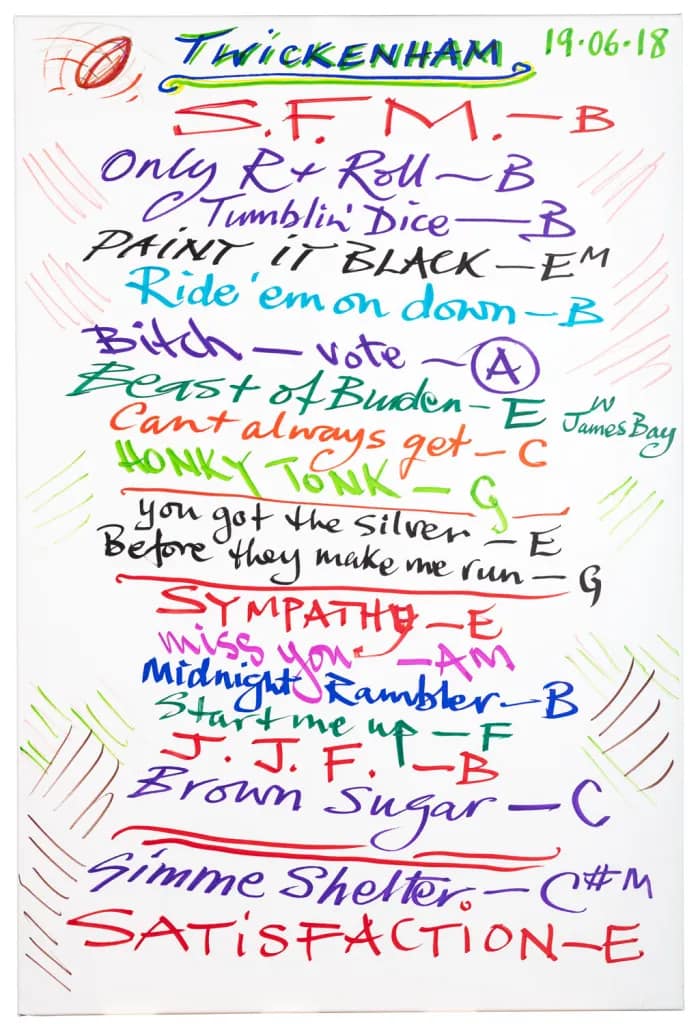 TWICKENHAM 19·06·18
S.F.M. — B
Only R+ Roll — B
Tumblin' Dice — B
PAINT iT BLACK — EM
Ride 'em on down — B
Bitch — vote — A
Beast of Burden — E W James Bay
Cant always get — C
HONKY TONK — G
you got the silver — E
Before they make me run — G
SYMPATHY — E
miss you — AM
Midnight Rambler — B
Start me up — F
J. J. F. — B
Brown Sugar — C
Gimme Shelter. — C#M
SATiSFACTION — E